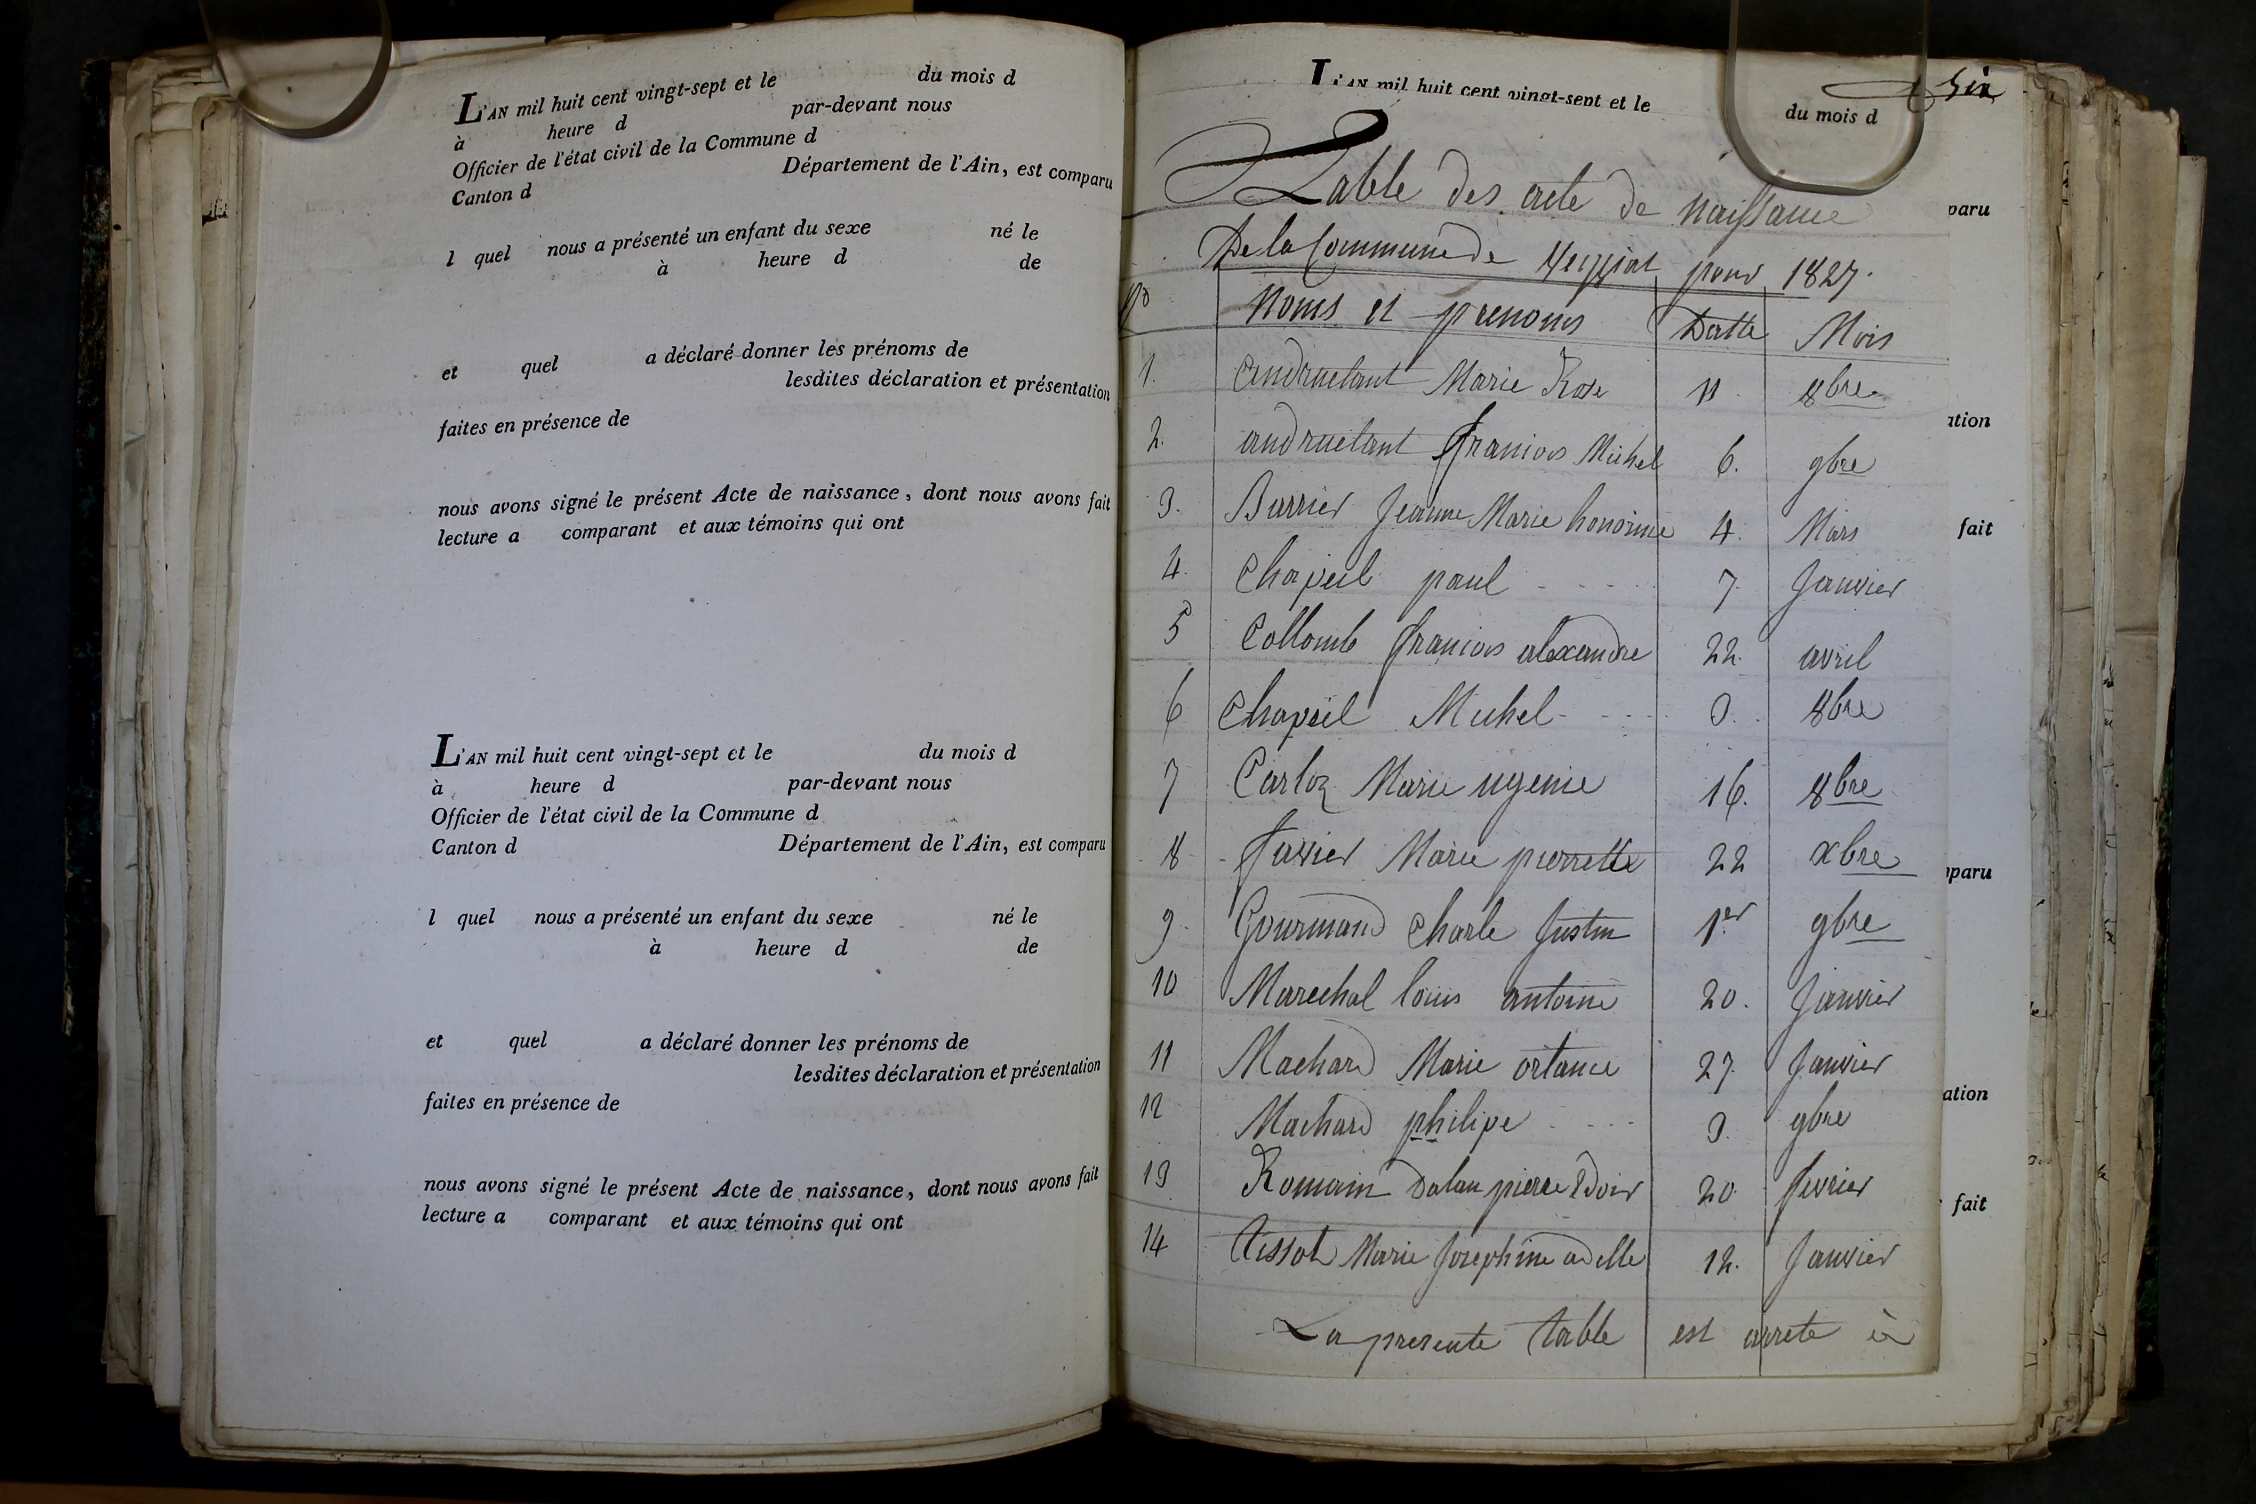 L'AN mil huit cent vingt-sept et le du mois d
à heure d par-devant nous
Officier de l'état civil de la Commune d
Canton d Département de l'Ain, est comparu
l quel nous a présenté un enfant du sexe né le
à heure d de
et quel a déclaré donner les prénoms de
lesdites déclaration et présentation
faites en présence de
nous avons signé le présent Acte de naissance, dont nous avons fait
lecture a comparant et aux témoins qui ont
L'AN mil huit cent vingt-sept et le du mois d
à heure d par-devant nous
Officier de l'état civil de la Commune d
Canton d Département de l'Ain, est comparu
l quel nous a présenté un enfant du sexe né le
à heure d de
et quel a déclaré donner les prénoms de
lesdites déclaration et présentation
faites en présence de
nous avons signé le présent Acte de naissance, dont nous avons fait
lecture a comparant et aux témoins qui ont
L'AN mil huit cent vingt-sept et le du mois d
six
Table des acte de naissance
De la Commune de Veyziat pour 1827.
No Noms et prenoms Datte Mois
1. andruetant Marie Rose 11 8bre
2. andruetant franiois Michel 6. 9bre
3. Burrier Jeanne Marie honorine 4. Mars
4. Chapuil paul 7. Janvier
5 Collomb franiois alexandre 22. avril
6 Chapuil Michel 3. 8bre
7 Carloz Marie ugenie 16. 8bre
8 favier Marie pierrette 22 xbre
9. Gourmand Charle Justin 1er 9bre
10 Marechal louis antoine 20. Janvier
11 Machard Marie ortance 27. Janvier
12 Machard philipe 3. 9bre
13 Romain pierre 20. fevrier
14 Tissot Marie Josephine adelle 12. Janvier
La presente table est arrete à
paru
ation
fait
paru
ation
fait